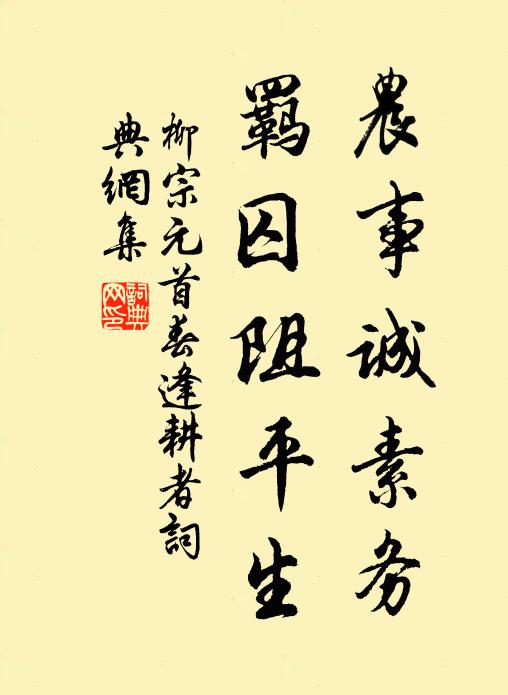 農事誠素务
羈囚阻平生
柳宗元首春逢耕者詞
典網集
詞典网印